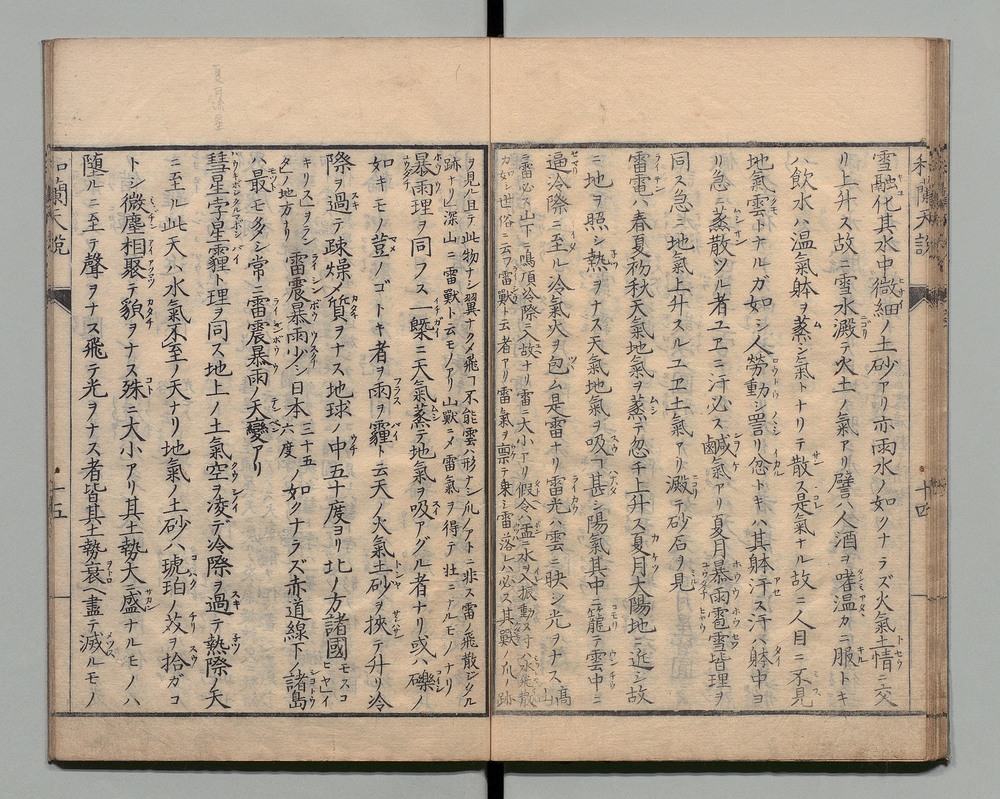 和蘭天説
十四
雪融化其水中微細ノ土砂アリ亦雨水ノ如クナラズ火氣土情ニ交
リ上升ス故ニ雪水澱テ火土ノ氣アリ譬ハ人酒ヲ啫温カニ服トキ
ハ飲水ハ温氣躰ヲ蒸シ氣トナリテ散ス是氣ナル故ニ人目ニ不見
地氣雲トナルガ如シ人勞動シ詈リ忿トキハ其躰汗ス汗ハ躰中ヨ
リ急ニ蒸散ツル者ユヱニ汗必ス鹹氣アリ夏月暴雨雹雪皆理ヲ
同ス急ニ地氣上升スルユヱ土氣アリ澱テ砂石ヲ見
雷霆ハ春夏初秋天氣地氣ヲ蒸テ忽チ上升ス夏月太陽地ニ近シ故
ニ地ヲ照シ熱ヲナス天氣地氣ヲ吸フ甚シ陽氣其中ニ籠テ雲中ニ
逼冷際ニ至ル冷氣火ヲ包ム是雷ナリ雷光ハ雲ニ映シ光ヲナス高山
ニ雷必ス山下ニ鳴頂冷際ニ入故ナリ雷ニ大小アリ假令ハ盥ニ水ヲ入振動ス寸ハ水飛散
カ如シ世俗ニ云フ雷獸ト云者アリ雷氣ヲ禀テ乗シ雷落レハ必ス其獸ノ爪ノ跡
ヲ見ル且テ此物ナシ翼ナクメ飛フ不能雲ハ形ナシ爪ノアトニ非ス雷ノ飛散シタル
跡ナリ」深山ニ雷獸ト云モノアリ山獸ニメ雷氣ヲ得テ壮ニナルモノナリ
暴雨理ヲ同フス一槩ニ天氣蒸テ地氣ヲ吸アグル者ナリ或ハ礫ノ
如キモノ荳ノゴトキ者ヲ雨ヲ霾ト云天ノ火氣土砂ヲ挾テ升リ冷
際ヲ過テ疎燥メ質ヲナス地球ノ中五十度ヨリ北ノ方諸國モスコヒヤ」イ
キリス」ヲランタ」地方ナリ雷震暴雨少シ日本三十五六度ノ如クナラズ赤道線下ノ諸島
ハ最モ多シ常ニ雷震暴雨ノ天變アリ
彗星孛星霾ト理ヲ同ス地上ノ土氣空ヲ凌テ冷際ヲ過テ熱際ノ天
ニ至ル此天ハ水氣不至ノ天ナリ地氣ノ土砂ハ琥珀ノ芥ヲ拾ガコ
トシ微塵相聚テ貌ヲナス殊ニ大小アリ其土勢大ニ盛ナルモノハ
墮ルニ至テ聲ヲナス飛テ光ヲナス者皆其土勢衰ヘ盡テ滅ルモノ
和蘭天説
十五